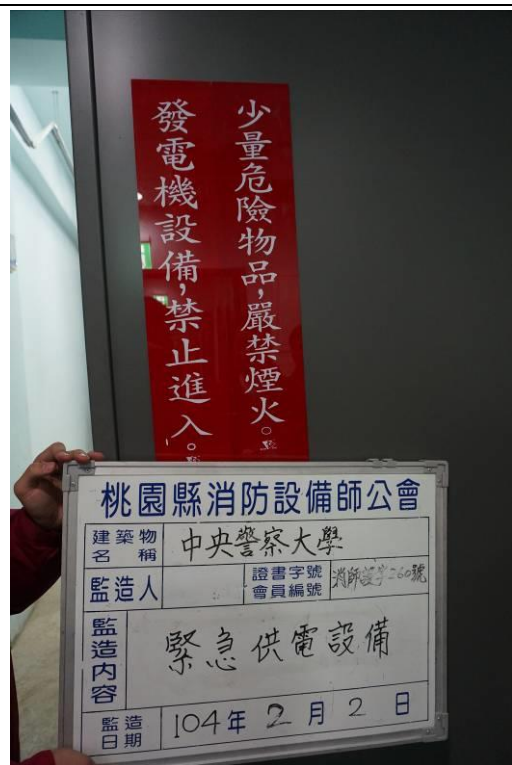 少量危險物品，嚴禁煙火。
發電機設備，禁止進入。
桃園縣消防設備師公會
建築物名稱 中央警察大學
監造人 證書字號會員編號 消師證字260號
監造內容 緊急供電設備
監造日期 104年2月2日